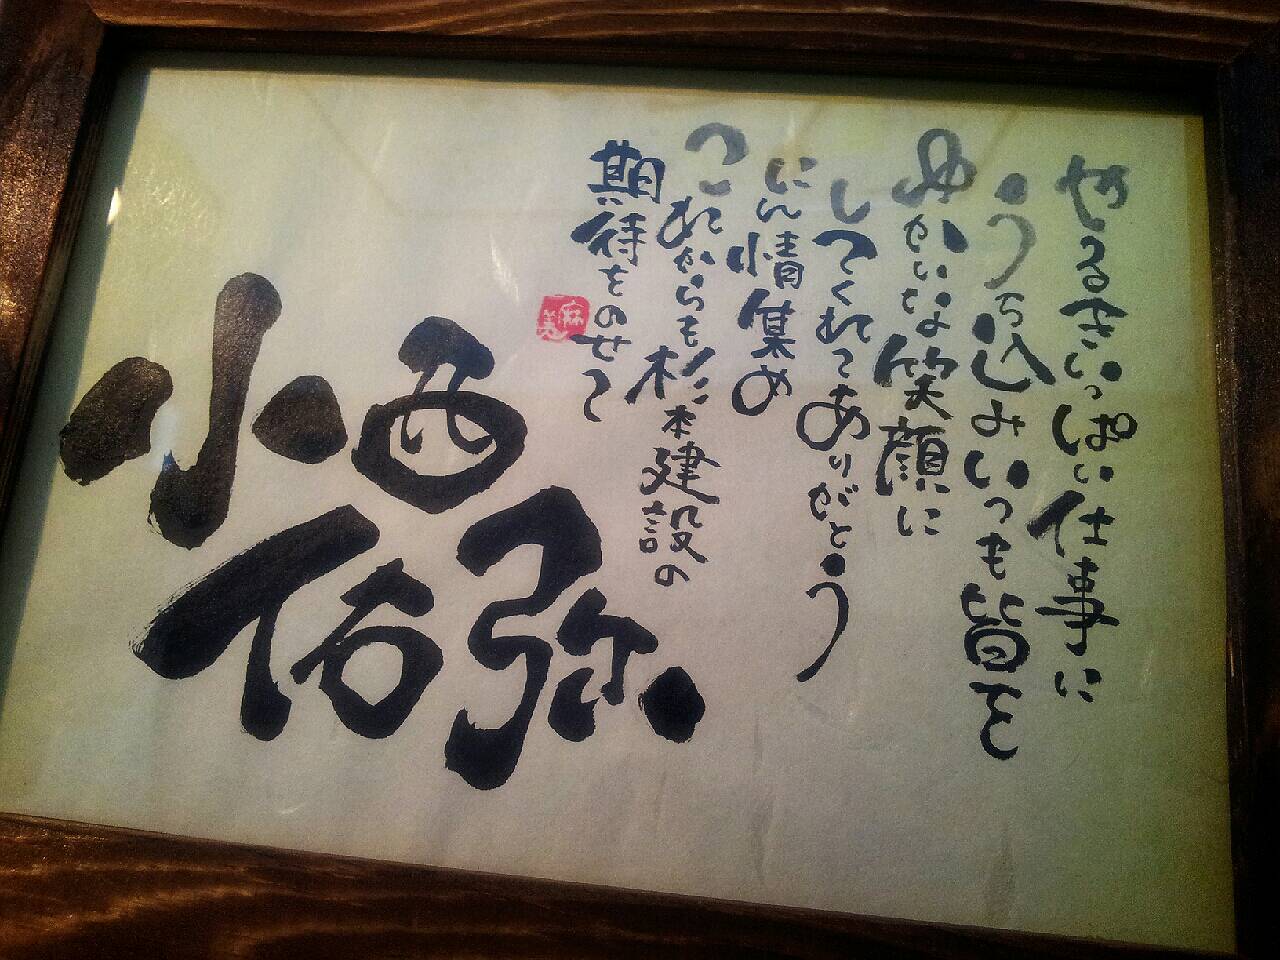 やるきいっぱい仕事に
うち込みいつも皆を
ゆかいな笑顔に
してくれてありがとう
にん情集め
これからも杉本建設の
期待をのせて
麻美
小西
佑弥